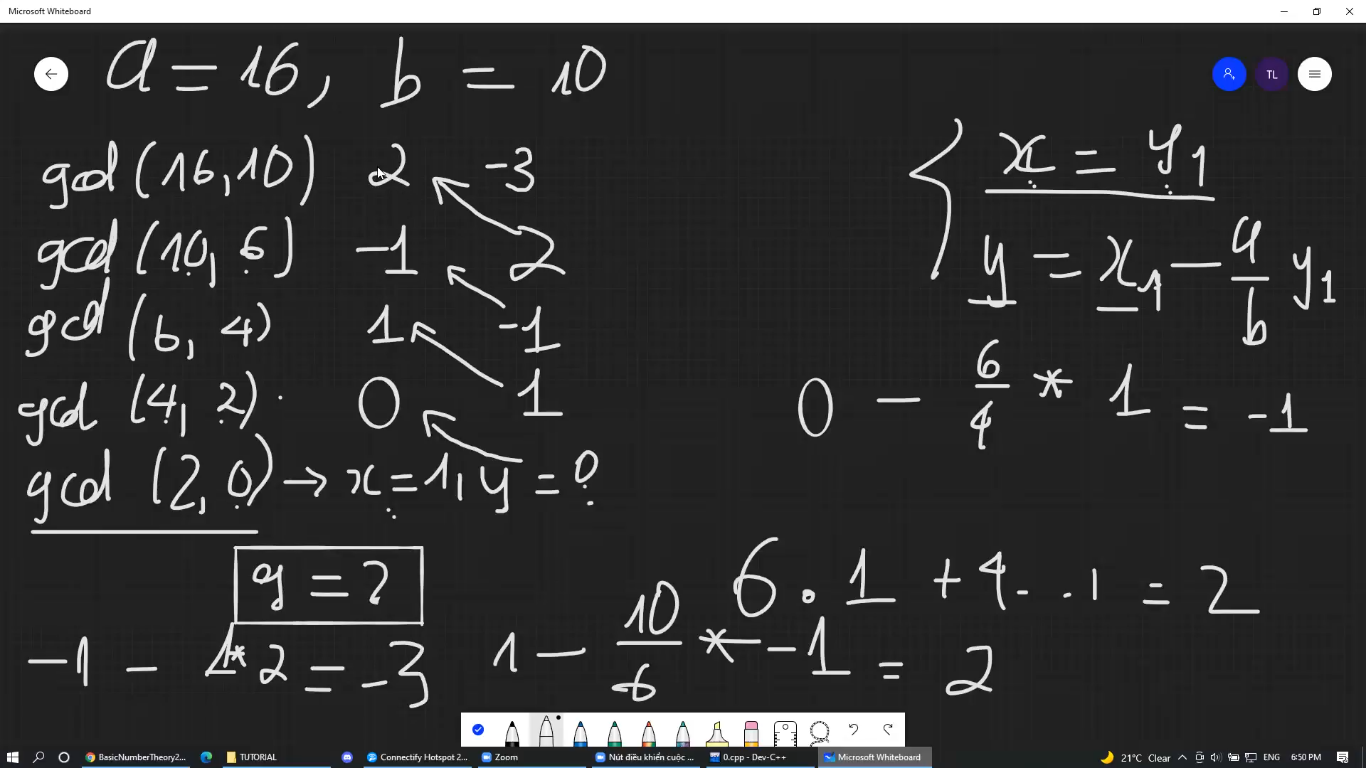 Microsoft Whiteboard
a = 16, b = 10
TL
gcd (16, 10) 2 -3
gcd (10, 6) -1 2
gcd (6, 4) 1 -1
gcd (4, 2) 0 1
gcd (2, 0) → x = 1, y = 0
x = y1
y = x1 - a/b y1
0 - 6/4 * 1 = -1
g = 2
6 . 1 + 4 . -1 = 2
-1 - 1*2 = -3
1 - 10/6 * -1 = 2
BasicNumberTheory2...
TUTORIAL
Connectify Hotspot 2...
Zoom
Nút điều khiển cuộc ...
0.cpp - Dev-C++
Microsoft Whiteboard
21°C Clear
ENG
6:50 PM